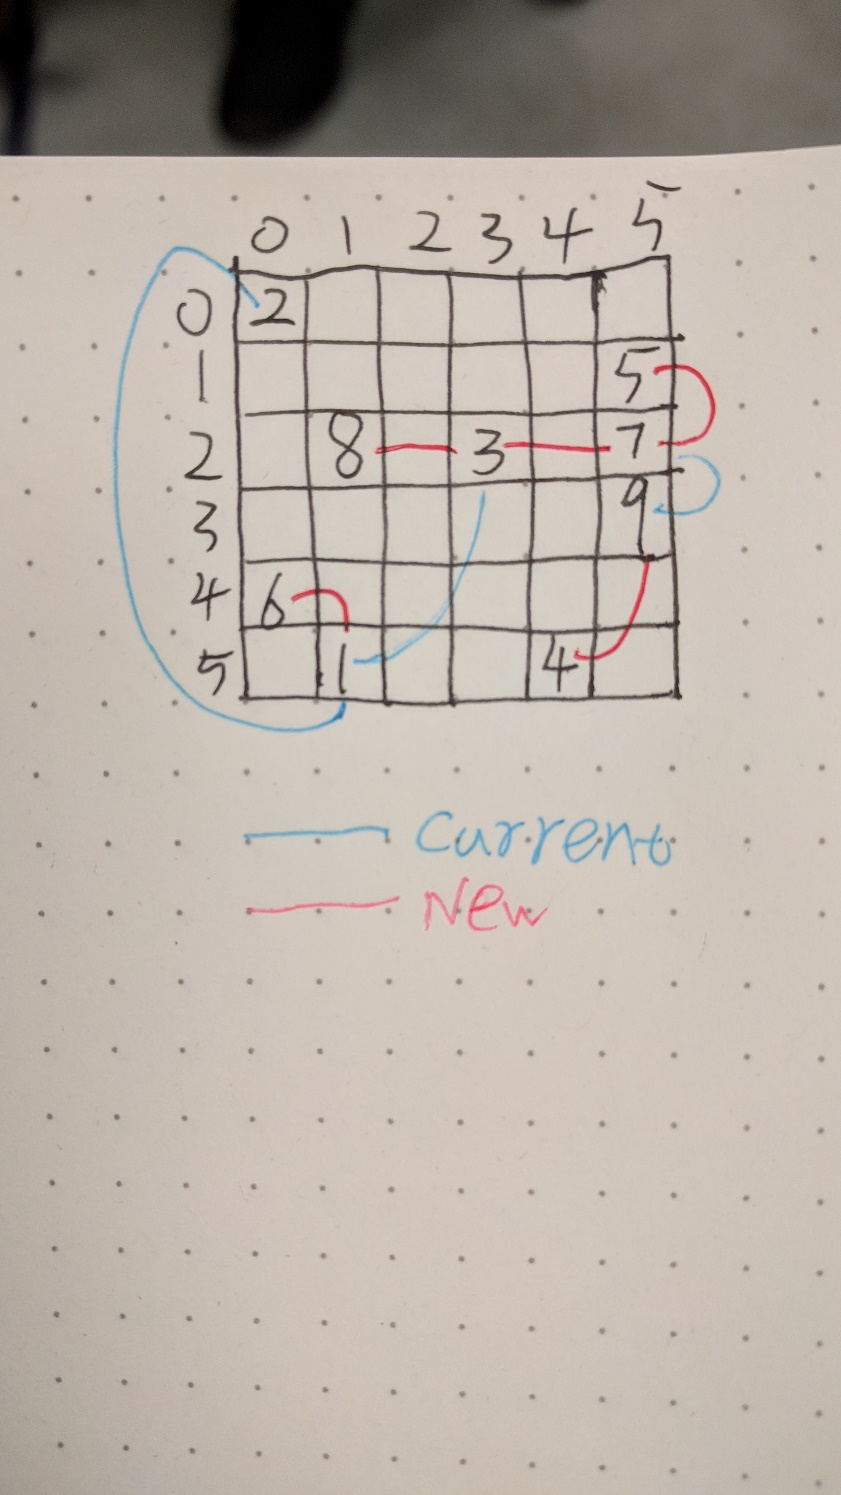 0 1 2 3 4 5
0 2
1 5
2 8 3 7
3 9
4 6
5 1 4
Current
New